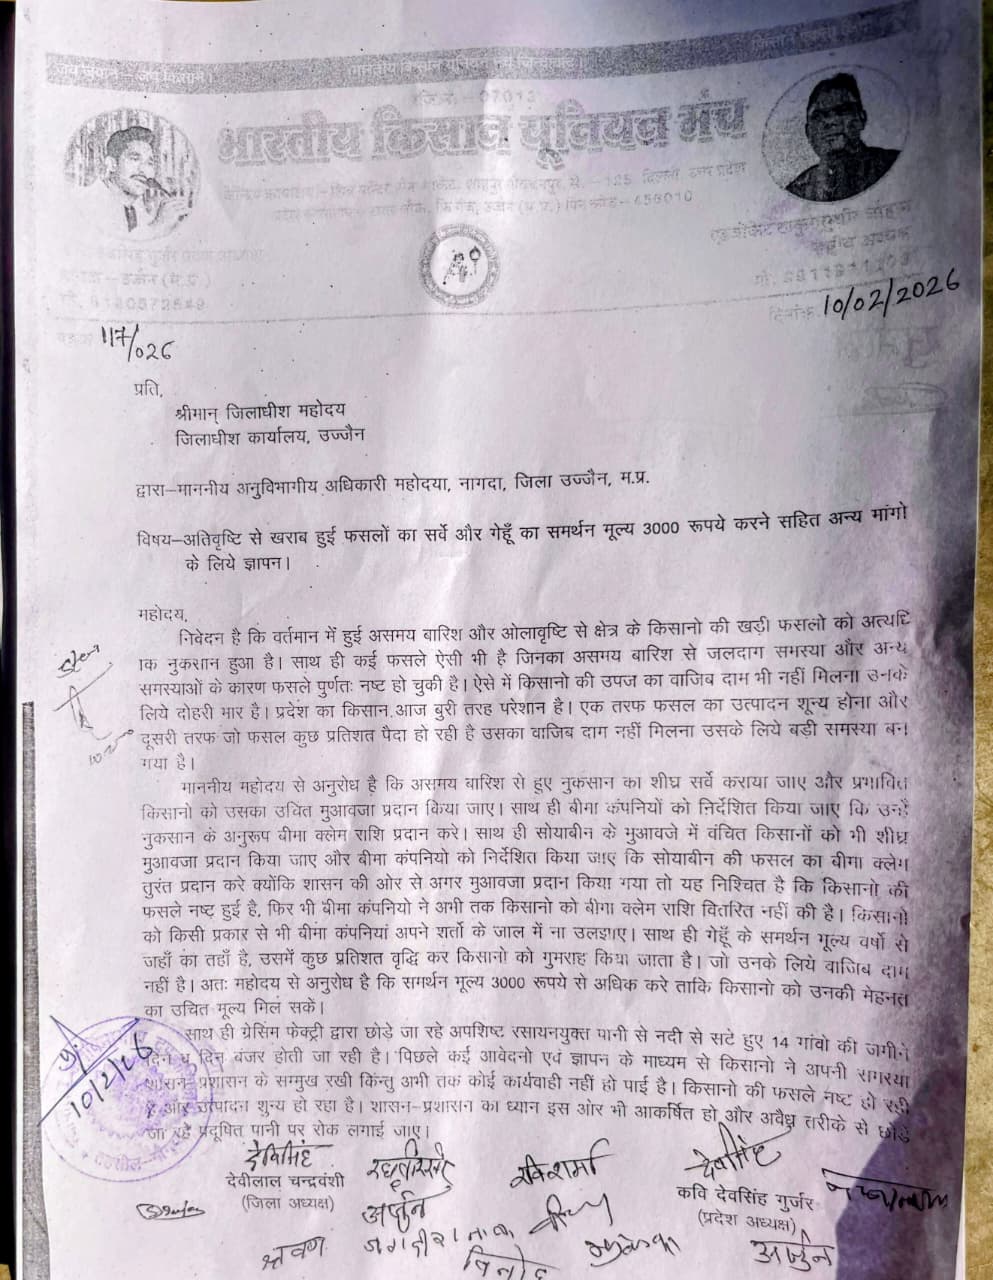 जय जवान – जय किसान।
भारतीय किसान यूनियन मंच जिन्दाबाद।
भारतीय किसान यूनियन मंच
दिनांक 10/02/2026
117/026
प्रति,
श्रीमान् जिलाधीश महोदय
जिलाधीश कार्यालय, उज्जैन
द्वारा–माननीय अनुविभागीय अधिकारी महोदया, नागदा, जिला उज्जैन, म.प्र.
विषय–अतिवृष्टि से खराब हुई फसलों का सर्वे और गेहूँ का समर्थन मूल्य 3000 रूपये करने सहित अन्य मांगो
के लिये ज्ञापन।
महोदय,
निवेदन है कि वर्तमान में हुई असमय बारिश और ओलावृष्टि से क्षेत्र के किसानो की खड़ी फसलो को अत्यधि
क नुकसान हुआ है। साथ ही कई फसले ऐसी भी है जिनका असमय बारिश से जलदाग समस्या और अन्य
समस्याओं के कारण फसले पुर्णतः नष्ट हो चुकी है। ऐसे में किसानो की उपज का वाजिब दाम भी नहीं मिलना उनके
लिये दोहरी भार है। प्रदेश का किसान आज बुरी तरह परेशान है। एक तरफ फसल का उत्पादन शून्य होना और
दूसरी तरफ जो फसल कुछ प्रतिशत पैदा हो रही है उसका वाजिब दाग नहीं मिलना उसके लिये बड़ी समस्या बन
गया है।
माननीय महोदय से अनुरोध है कि असमय बारिश से हुए नुकसान का शीघ्र सर्वे कराया जाए और प्रभावित
किसानो को उसका उचित मुआवजा प्रदान किया जाए। साथ ही बीमा कंपनियों को निर्देशित किया जाए कि उन्हें
नुकसान के अनुरूप बीमा क्लेम राशि प्रदान करे। साथ ही सोयाबीन के मुआवजे में वंचित किसानों को भी शीघ्र
मुआवजा प्रदान किया जाए और बीमा कंपनियो को निर्देशित किया जाए कि सोयाबीन की फसल का बीमा क्लेग
तुरंत प्रदान करे क्योंकि शासन की ओर से अगर मुआवजा प्रदान किया गया तो यह निश्चित है कि किसानो की
फसले नष्ट हुई है, फिर भी बीमा कंपनियो ने अभी तक किसानो को बीमा क्लेम राशि वितरित नहीं की है। किसानो
को किसी प्रकार से भी बीमा कंपनियां अपने शर्तो के जाल में ना उलझाए। साथ ही गेहूँ के समर्थन मूल्य वर्षो से
जहाँ का तहाँ है, उसमें कुछ प्रतिशत वृद्धि कर किसानो को गुमराह किया जाता है। जो उनके लिये वाजिब दाम
नहीं है। अतः महोदय से अनुरोध है कि समर्थन मूल्य 3000 रूपये से अधिक करे ताकि किसानो को उनकी मेहनत
का उचित मूल्य मिल सकें।
साथ ही ग्रेसिंम फेक्ट्री द्वारा छोड़े जा रहे अपशिष्ट रसायनयुक्त पानी से नदी से सटे हुए 14 गांवो की जमीने
दिन ब दिन बंजर होती जा रही है। पिछले कई आवेदनो एवं ज्ञापन के माध्यम से किसानो ने अपनी समस्या
शासन प्रशासन के सम्मुख रखी किंतु अभी तक कोई कार्यवाही नहीं हो पाई है। किसानो की फसले नष्ट हो रही
है और उत्पादन शून्य हो रहा है। शासन-प्रशासन का ध्यान इस ओर भी आकर्षित हो और अवैध तरीके से छोड़े
जा रहे प्रदूषित पानी पर रोक लगाई जाए।
10/2/26
देवीलाल चन्द्रवंशी
(जिला अध्यक्ष)
रवि शर्मा
देवीसिंह
कवि देवसिंह गुर्जर
(प्रदेश अध्यक्ष)
अर्जुन
श्रवण
विनोद
अर्जुन